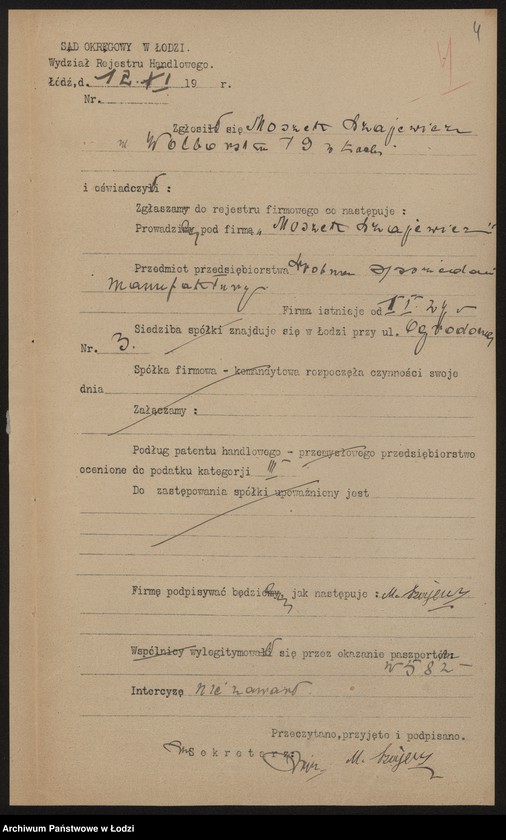 4
SĄD OKRĘGOWY W ŁODZI.
VI
Wydział Rejestru Handlowego.
Łódź, d. 12. XI 19 r.
Nr.
Zgłosił się Moszek
w Wolborska 19 w Łodzi
i oświadczył :
Zgłaszamy do rejestru firmowego co następuje :
Prowadzę pod firmą „Moszek
Przedmiot przedsiębiorstwa drobna sprzedaż
manufaktury
Firma istnieje od
Siedziba spółki znajduje się w Łodzi przy ul. Ogrodowej
Nr. 3.
Spółka firmowa - komandytowa rozpoczęła czynności swoje
dnia
Załączamy :
Podług patentu handlowego - przemysłowego przedsiębiorstwo
ocenione do podatku kategorji III
Do zastępowania spółki upoważniony jest
Firmę podpisywać będzie jak następuje : M.
Wspólnicy wylegitymował się przez okazanie paszportu
N 582
Intercyzę nie zawarł
Przeczytano, przyjęto i podpisano.
Sekretarz: M.
Archiwum Państwowe w Łodzi